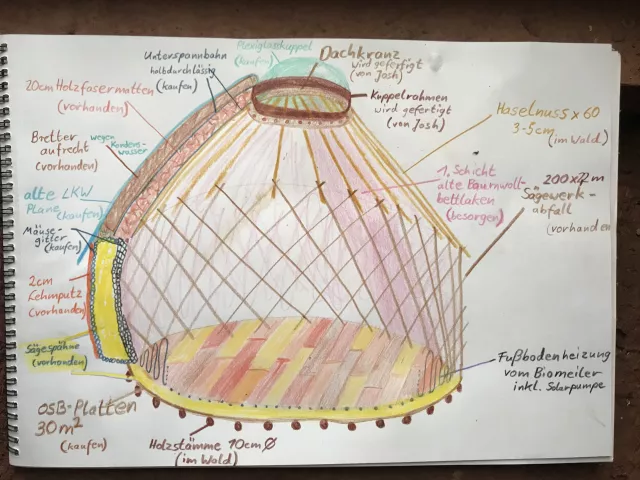 Plexiglaskuppel
(kaufen)
Dachkranz
wird gefertigt
(von Josh)
Unterspannbahn
halbdurchlässig
(kaufen)
Kuppelrahmen
wird gefertigt
(von Josh)
20cm Holzfasermatten
(vorhanden)
Haselnuss x 60
3-5cm
(im Wald)
Bretter wegen
aufrecht Kondens-
(vorhanden) wasser
1. Schicht
alte Baumwoll-
bettlaken
(besorgen)
200x2m
Sägewerk-
abfall
(vorhanden
alte LKW
Plane (kaufen)
Mäuse-
gitter
(kaufen)
2cm
Lehmputz
(vorhanden)
Sägespähne
(vorhanden)
Fußbodenheizung
vom Biomeiler
inkl. Solarpumpe
OSB-Platten
30m²
(kaufen)
Holzstämme 10cm Ø
(im Wald)